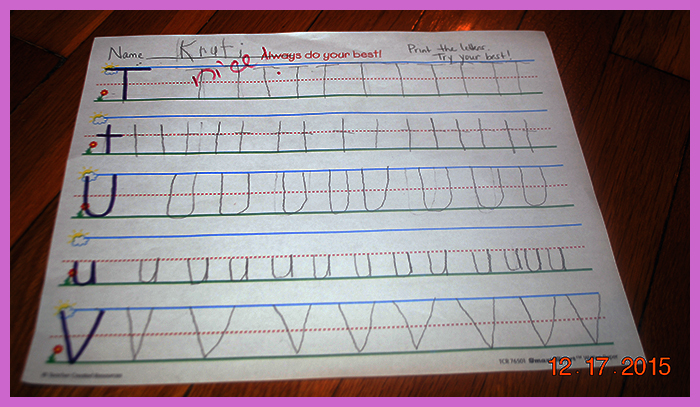 Name Kruti Always do your best! Print the letters.
nice Try your best!
T T T T T T T T T T T
t t t t t t t t t t t t t t
U U U U U U U U U U
u u u u u u u u u u u u u
V V V V V V V V V
TCR 76503
© Teacher Created Resources
12.17.2015